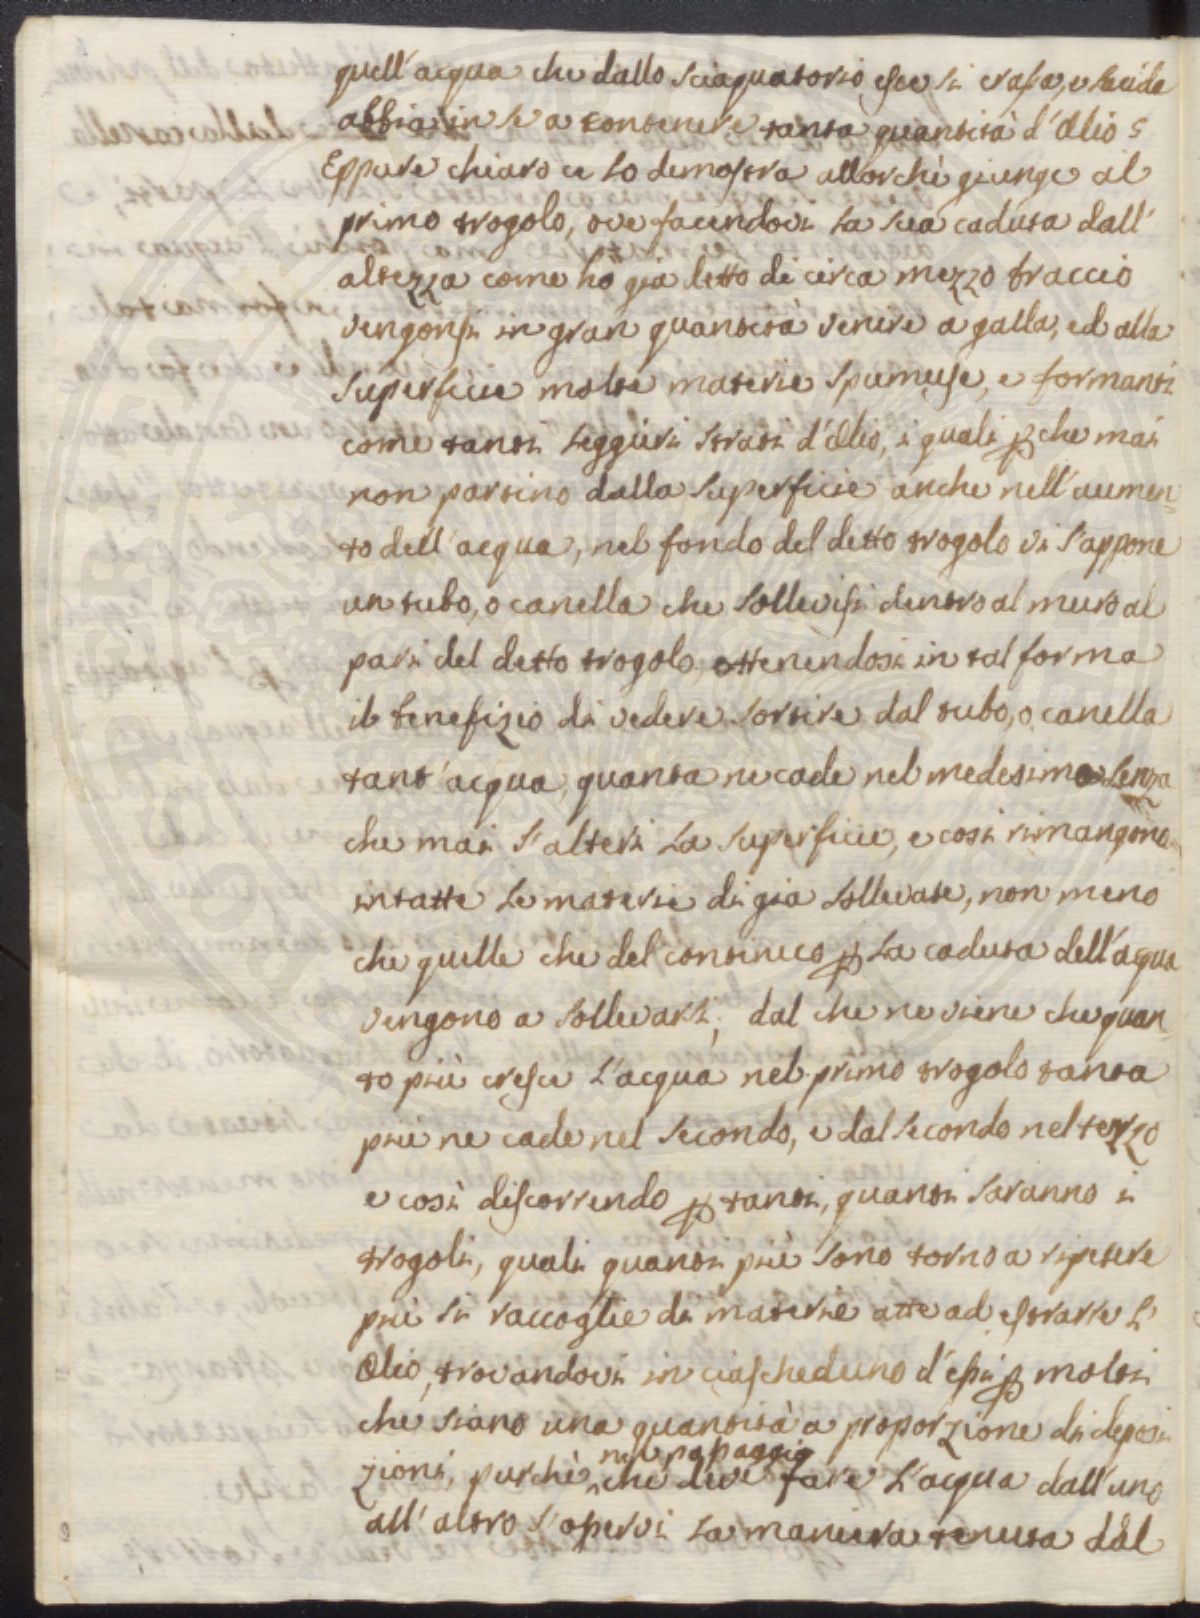 quell'acqua che dallo sciaquatorio esce si crassa, e sucida
abbia in se a contenere tanta quantità d'Olio?
Eppure chiaro ce lo demostra allorchè giunge al
primo trogolo, ove facendovi la sua caduta dall'
altezza come ho già detto di circa mezzo braccio
vengonsi in gran quantità venire a galla, ed alla
superficie molte materie spumose, e formanti
come tanti leggieri strati d'Olio, i quali p che mai
non partino dalla superficie anche nell'aumen-
to dell'acqua, nel fondo del detto trogolo vi s'appone
un tubo, o canella che sollevisi dentro al muro al
pari del detto trogolo ottenendosi in tal forma
il benefizio di vedere sortire dal tubo, o canella
tant'acqua, quanta ne cade nel medesimo senza
che mai s'alteri la superficie, e così rimangono
intatte le materie di già sollevate, non meno
che quelle che del continuo p la caduta dell'acqua
vengono a sollevarsi; dal che ne viene che quan-
to più cresce l'acqua nel primo trogolo tanta
più ne cade nel secondo, e dal secondo nel terzo
e così discorrendo p tanti, quanti saranno i
trogoli, quali quanti più sono torno a ripetere
più si raccoglie di materie atte ad estrarre l'
Olio, trovandovi in ciascheduno d'essi p molti
che siano una quantità a proporzione di deposi
zioni, purchè nel passaggio che deve fare l'acqua dall'uno
all'altro s'opervi la maniera tenuta dal